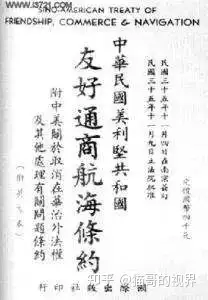 www.i3721.com
SINO-AMERICAN TREATY OF
FRIENDSHIP, COMMERCE & NAVIGATION
民國三十五年十一月四日在南京簽訂
民國三十五年十一月九日立法院批准
定價國幣四千元
中華民國美利堅共和國
友好通商航海條約
附中美關於取消在華治外法權
及其他處理有關問題條約
(附英文本)
國際出版社印行
知乎 @临哥的视界